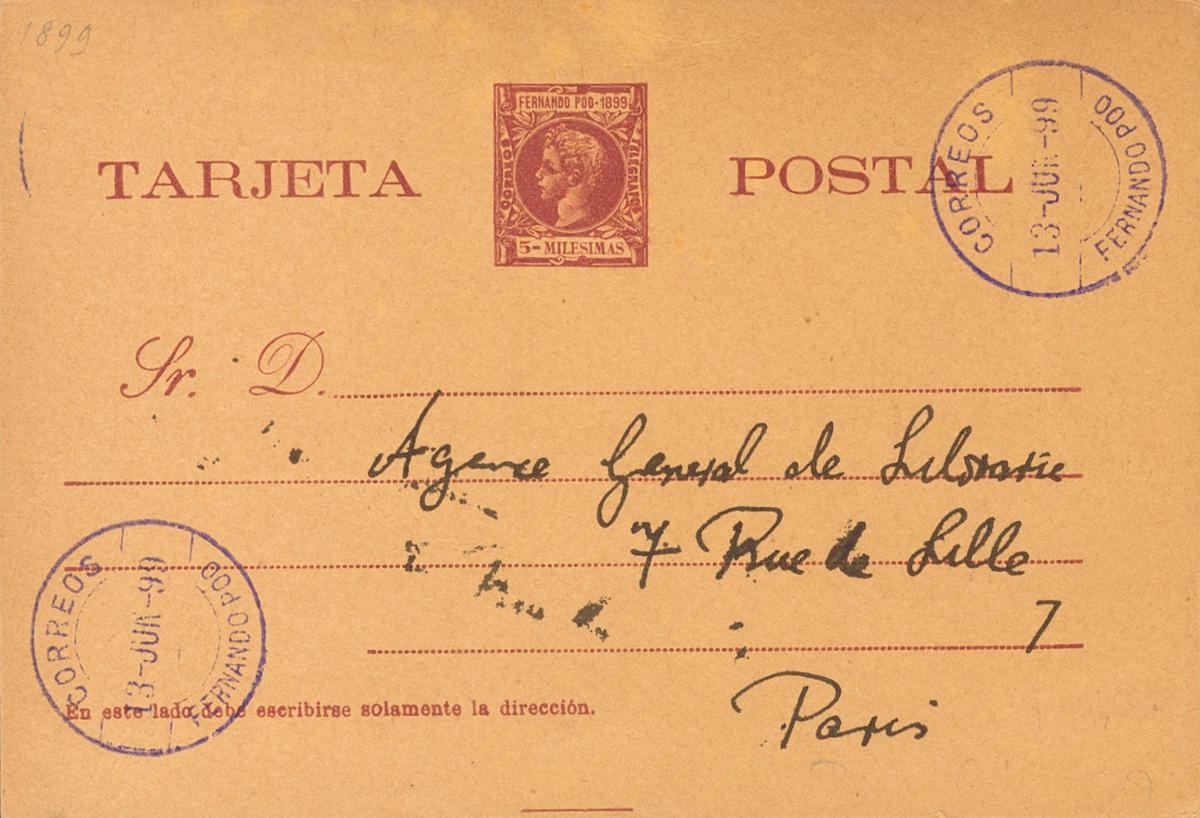 1899
FERNANDO POO-1899
CORREOS
TELEGRAFOS
5- MILESIMAS
TARJETA POSTAL
CORREOS
13-JUN-99
FERNANDO POO
Sr. D.
Agence General de Librarie
7 Rue de Lille
7
Paris
CORREOS
13-JUN-99
FERNANDO POO
En este lado debe escribirse solamente la dirección.